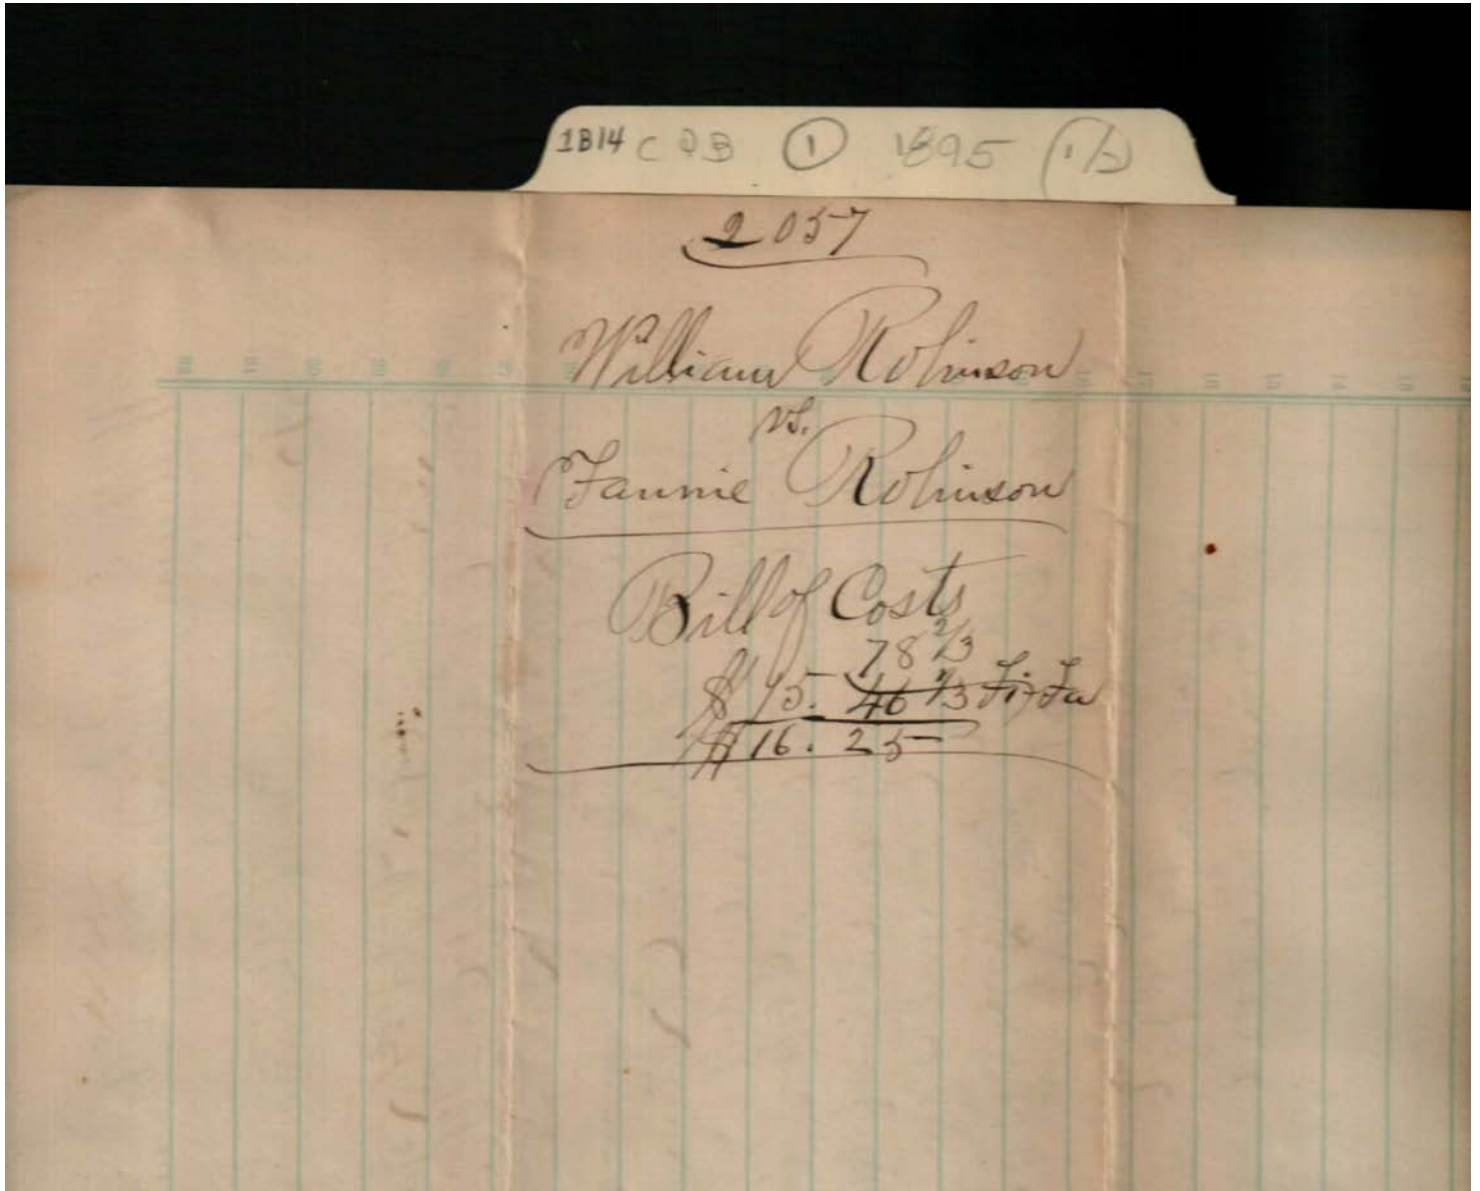 1B14 C Q B 1 1895 (1/2)
2057
William Robinson
vs.
Fannie Robinson
Bill of Costs
78 2/3
$ 15. 46 1/3 Fi Fa
$ 16. 25